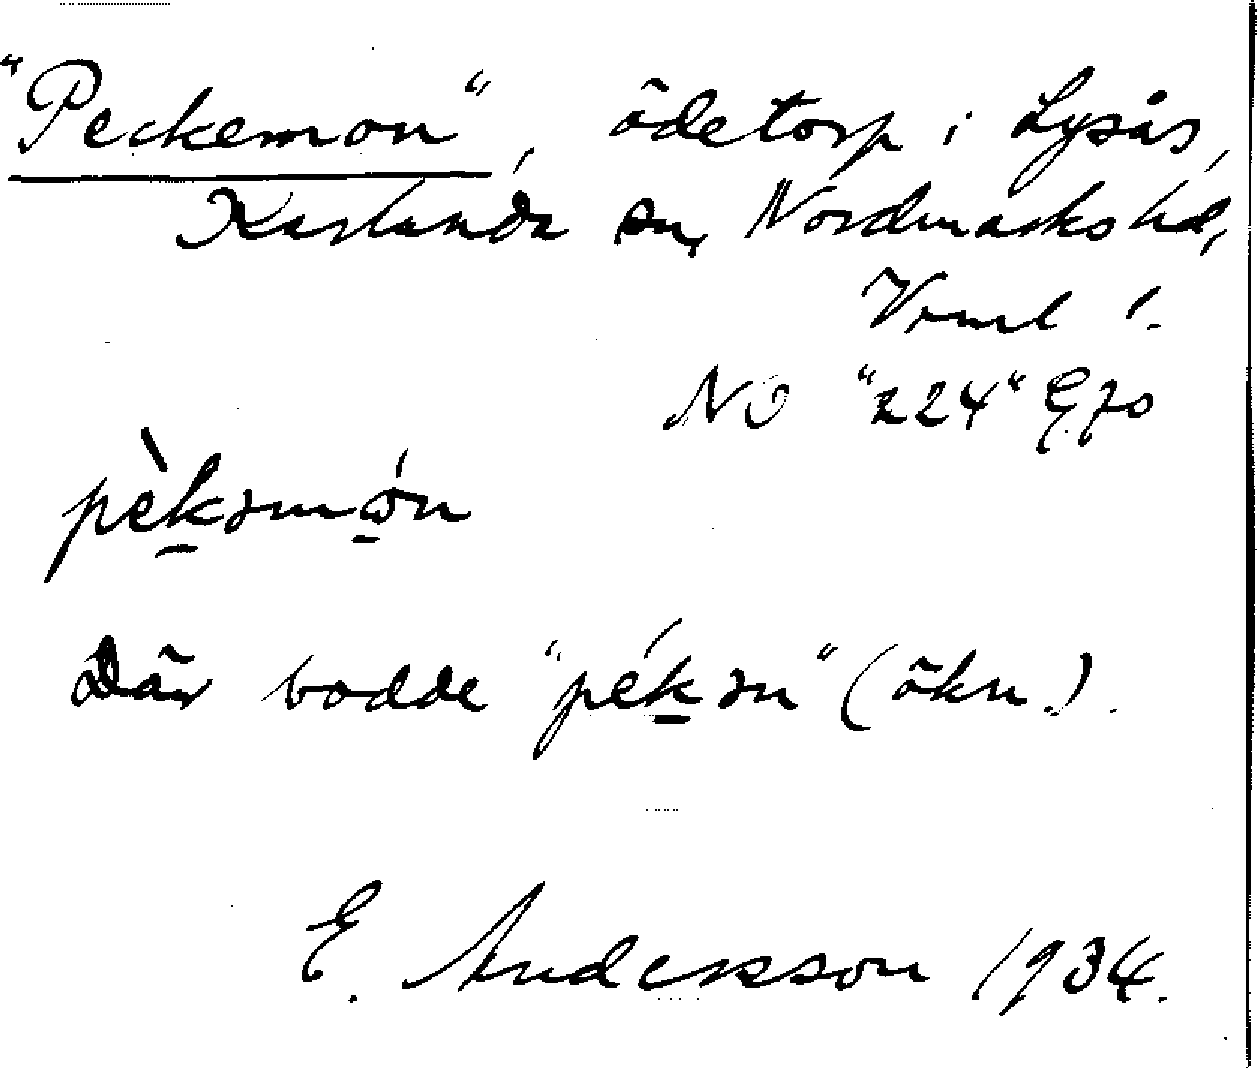 "Peckemon", ödetorp i Lysås,
Karlanda sn, Nordmarks hd,
Vrml.
NO "224" Eko
pèkəmón
Där bodde "pékən" (ökn.).
E. Andersson 1934.